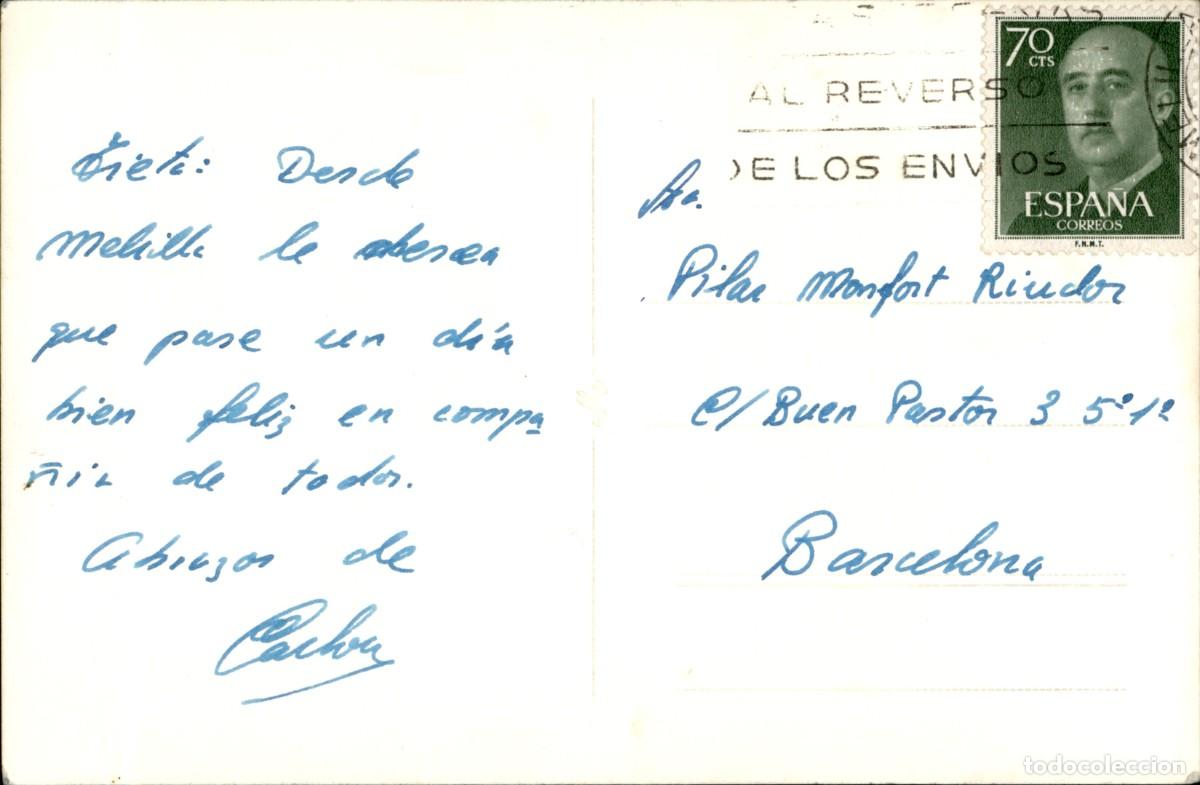 Tieta: Desde
Melilla le desea
que pase un día
bien feliz en compa
ñia de todos.
Abrazos de
Carlos
AL REVERSO
DE LOS ENVIOS
70
CTS
ESPAÑA
CORREOS
F.N.M.T.
Sra.
Pilar Monfort Rindor
C/ Buen Pastor 3 5º 1ª
Barcelona
todocoleccion